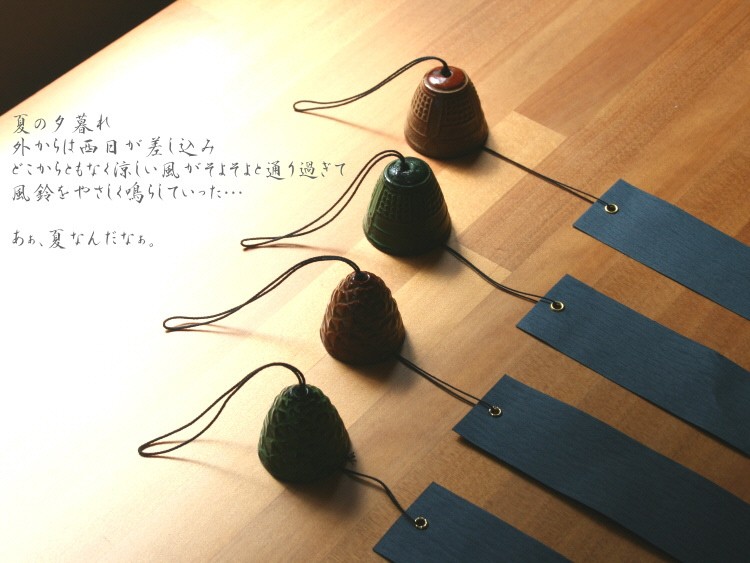 夏の夕暮れ
外からは西日が差し込み
どこからともなく涼しい風がそよそよと通り過ぎて
風鈴をやさしく鳴らしていった…
あぁ、夏なんだなぁ。